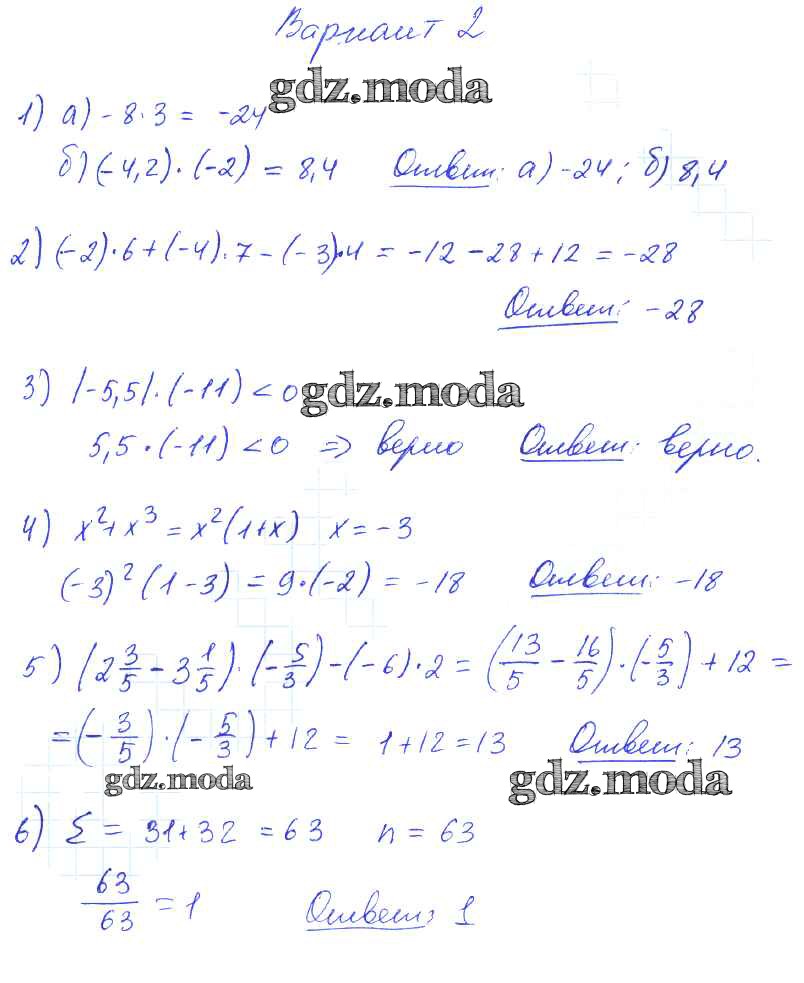 Вариант 2
gdz.moda
1) а) -8·3 = -24
б) (-4,2)·(-2) = 8,4 Ответ: а) -24; б) 8,4
2) (-2)·6+(-4)·7-(-3)·4 = -12-28+12 = -28
Ответ: -28
3) |-5,5|·(-11) < 0 gdz.moda
5,5·(-11) < 0 => верно Ответ: верно.
4) x²+x³ = x²(1+x) x = -3
(-3)²(1-3) = 9·(-2) = -18 Ответ: -18
5) (2 3/5 - 3 1/5)·(-5/3)-(-6)·2 = (13/5 - 16/5)·(-5/3)+12 =
= (-3/5)·(-5/3)+12 = 1+12 = 13 Ответ: 13
gdz.moda gdz.moda
6) Σ = 31+32 = 63 n = 63
63/63 = 1 Ответ: 1